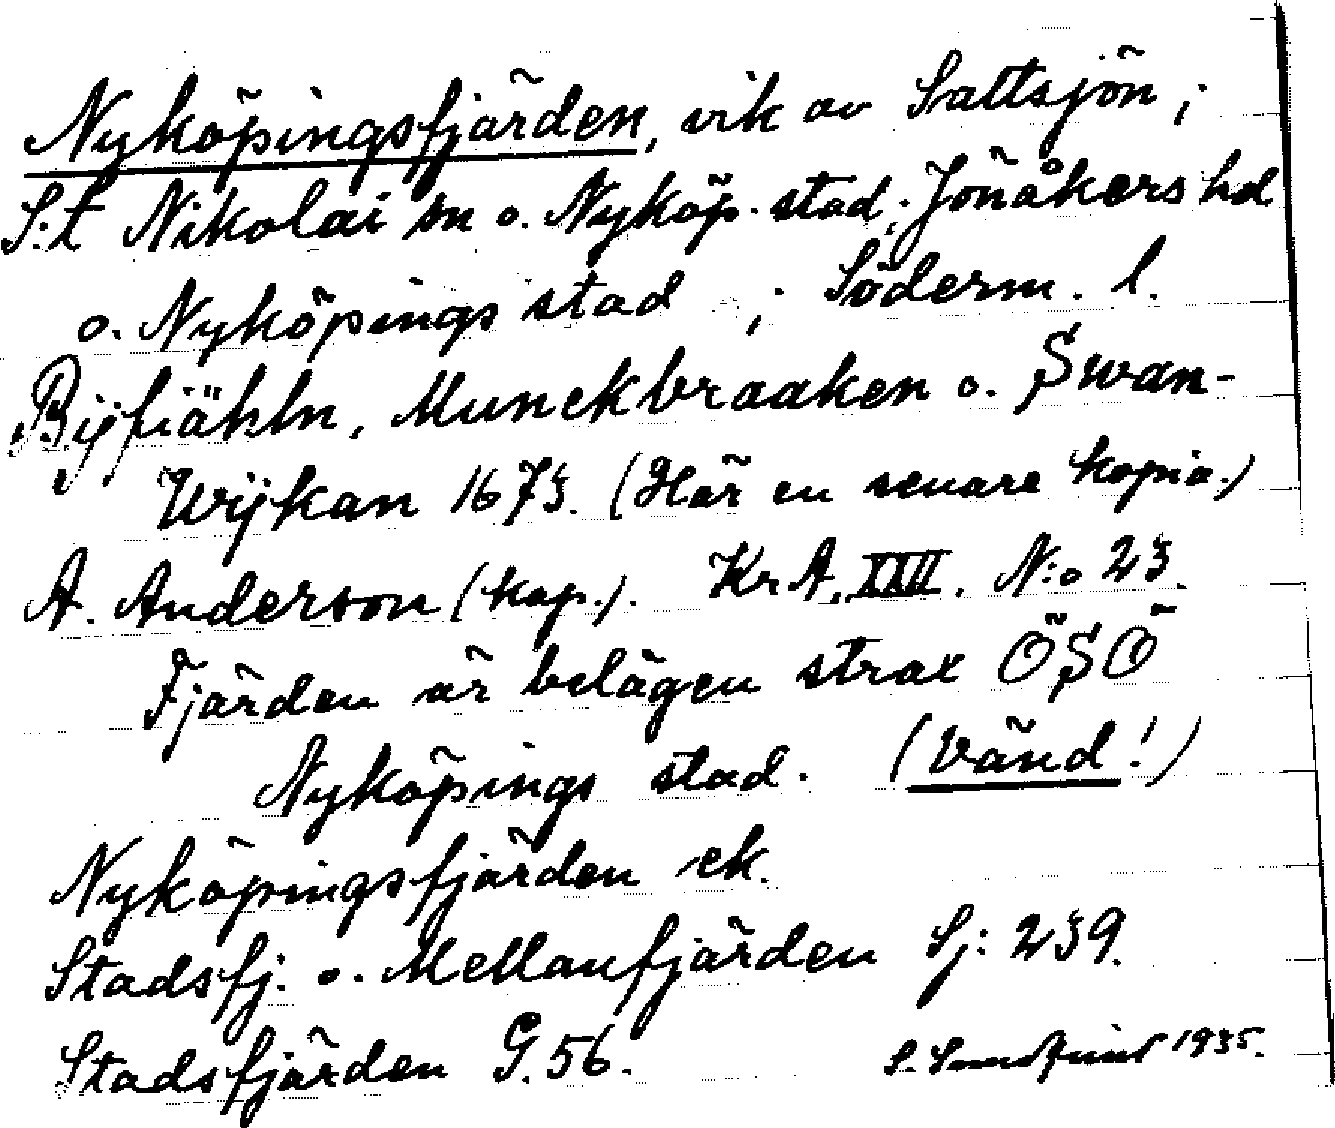 Nyköpingsfjärden, vik av Saltsjön;
S:t Nikolai sn o. Nyköp. stad; Jönåkers hd
o. Nyköpings stad; Söderm. l.
Bÿfiähln, Munckbraaken o. Swan-
Wijkan 1673. (Här en senare kopia.)
A. Anderson (kop.). Kr A, XXVI. N:o 23.
Fjärden är belägen strax ÖSÖ
Nyköpings stad. (Vänd!)
Nyköpingsfjärden ek.
Stadsfj. o. Mellanfjärden Sj: 239.
Stadsfjärden G. 56. S. 1935.